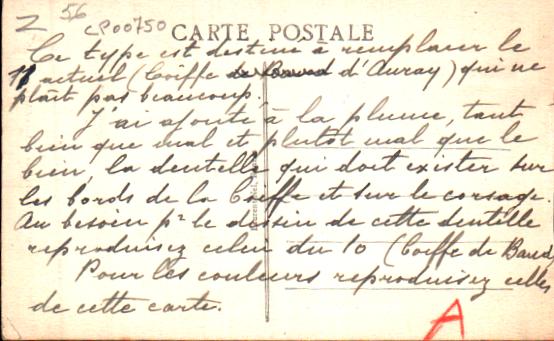 Z 56
CP00750
CARTE POSTALE
Ce type est destiné à remplacer le
11 actuel (Coiffe de Baud d'Auray) qui ne
plaît pas beaucoup.
J'ai ajouté à la plume, tant
bien que mal et plutôt mal que
bien, la dentelle qui doit exister sur
les bords de la Coiffe et sur le corsage.
Au besoin pr le dessin de cette dentelle
reproduisez celui du 10 (Coiffe de Baud
Pour les couleurs reproduisez celles
de cette carte.
A